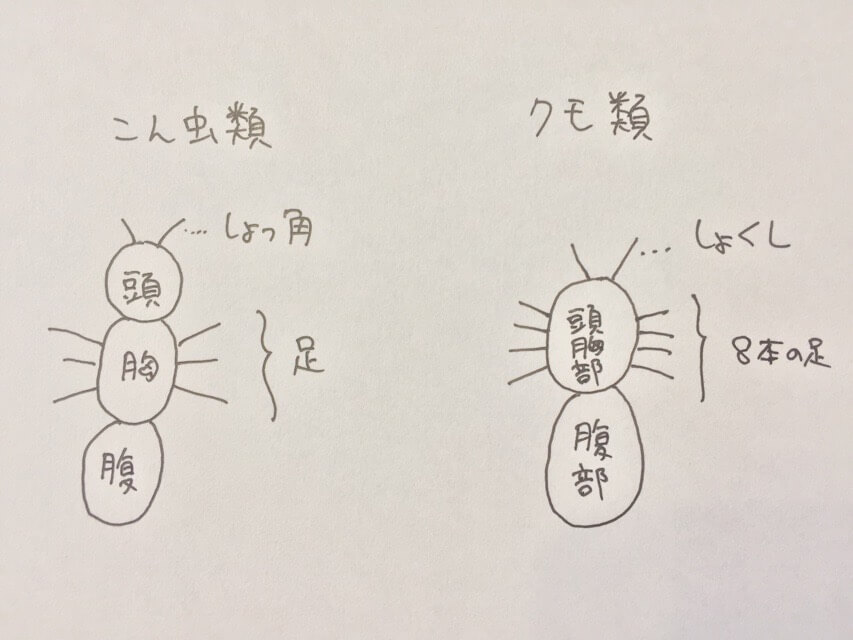 こん虫類
しょっ角
頭
胸
足
腹
クモ類
しょくし
頭
胸
部
8本の足
腹
部